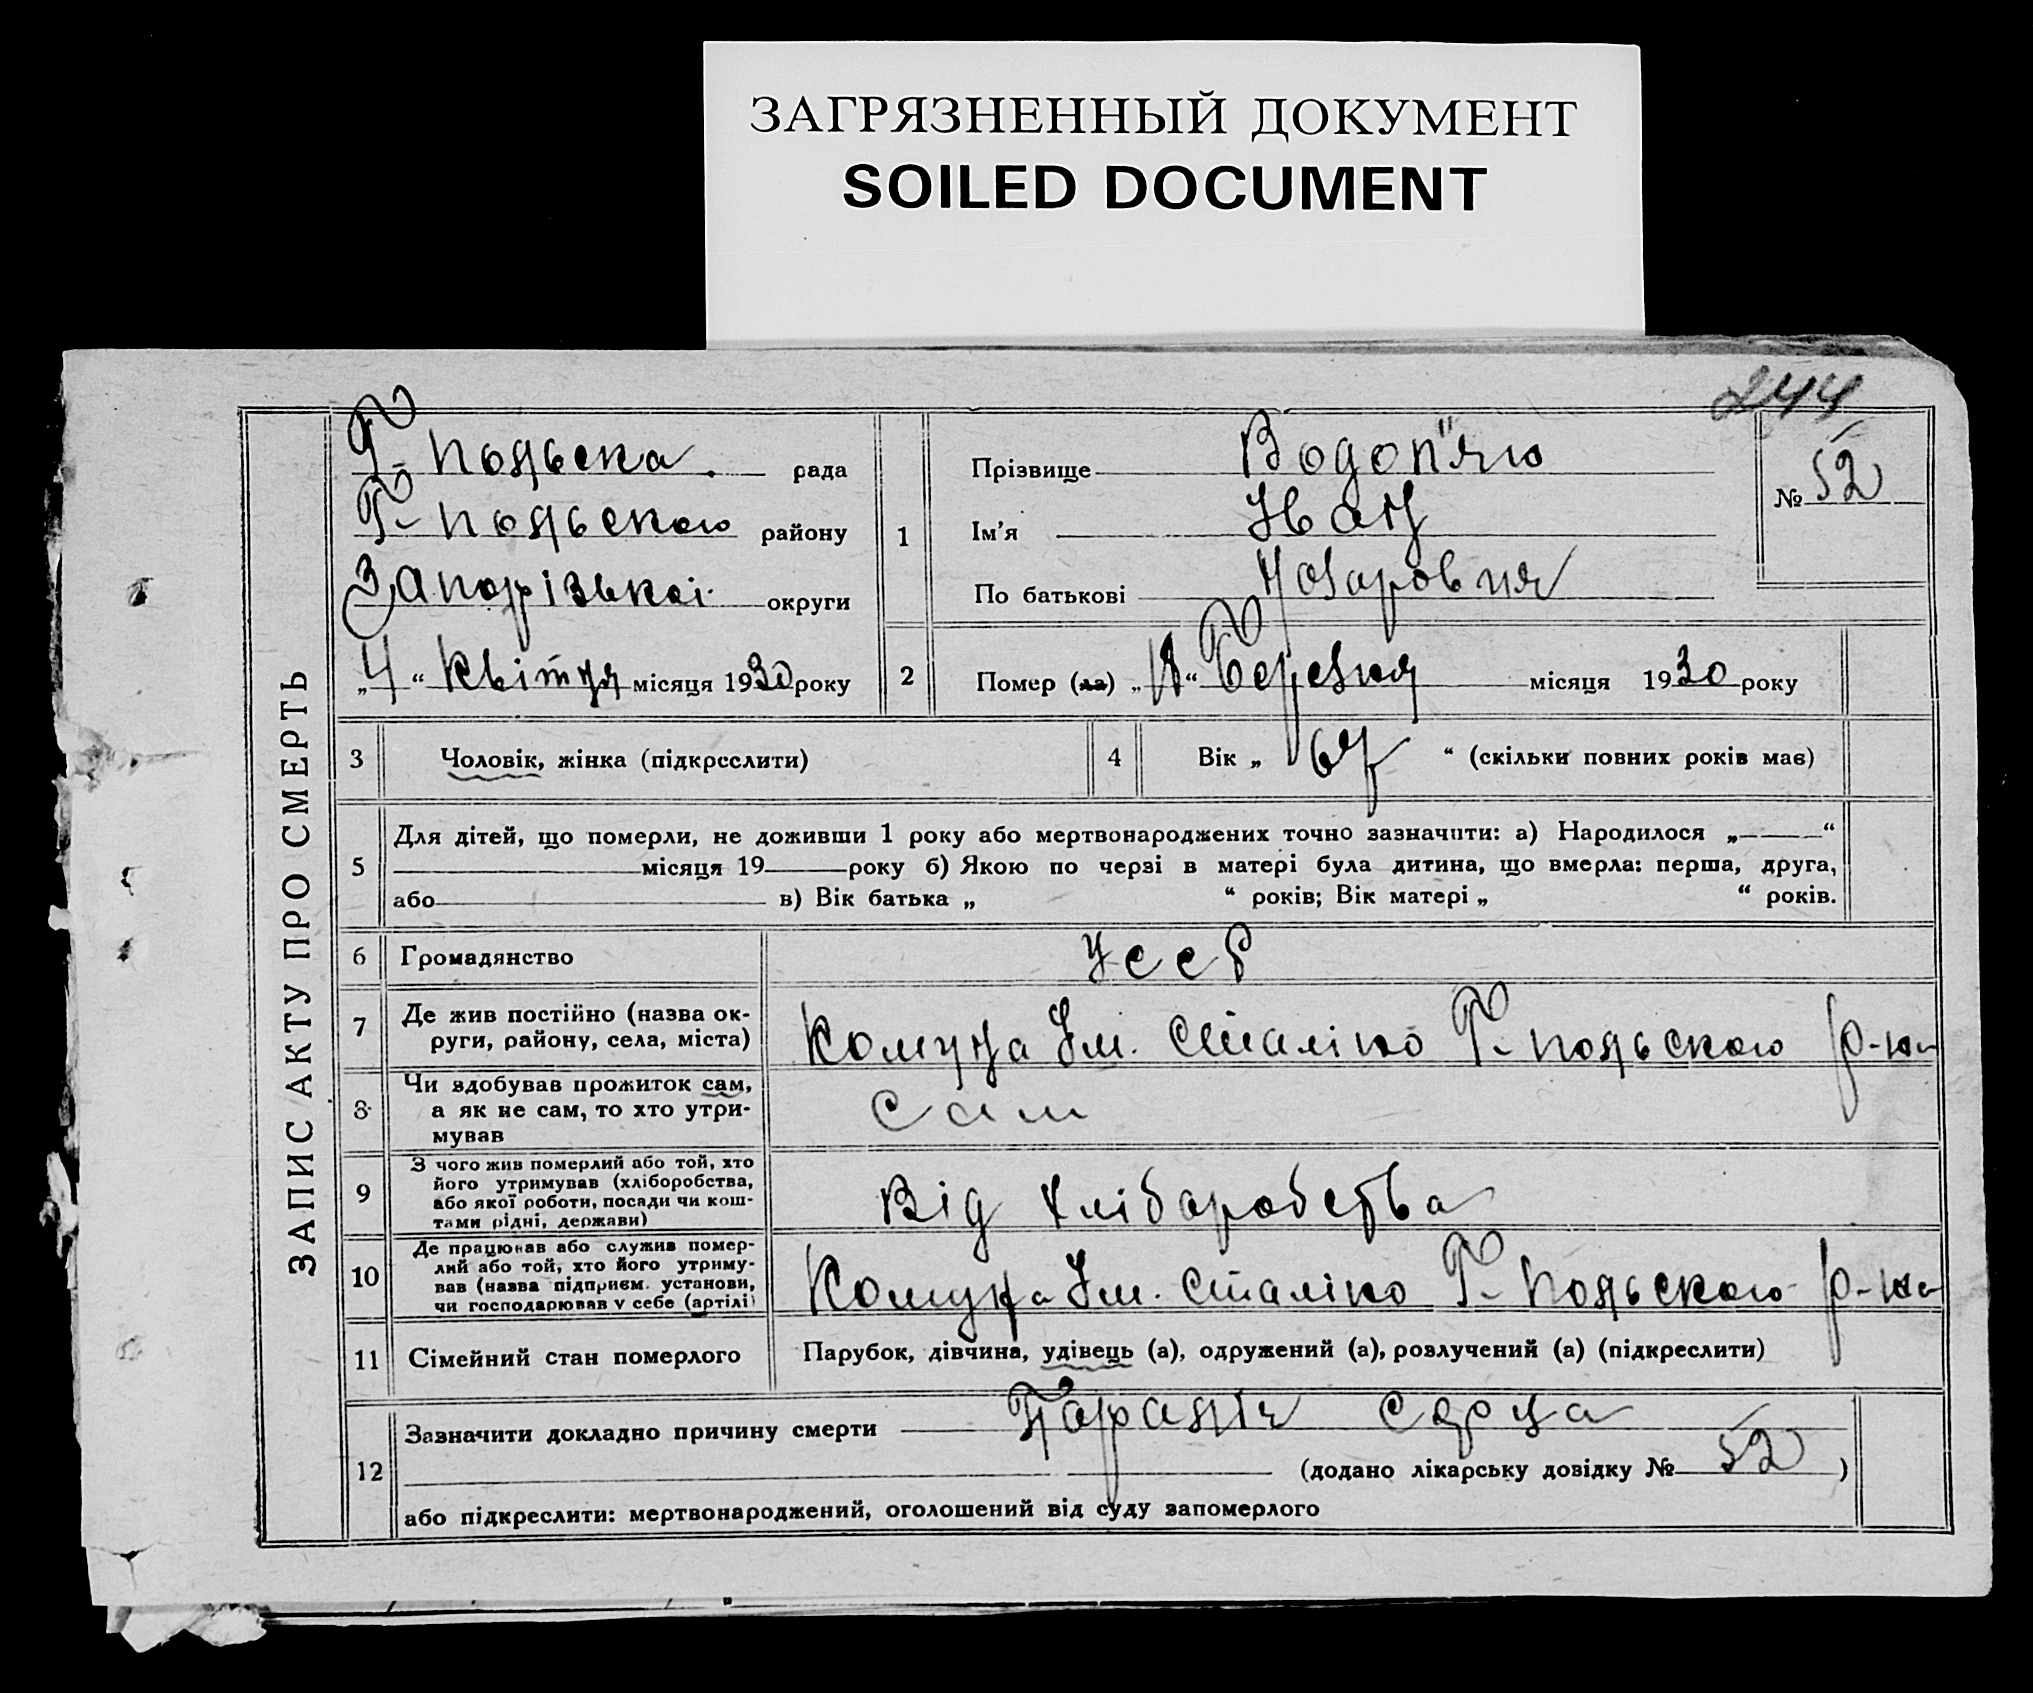 ЗАГРЯЗНЕННЫЙ ДОКУМЕНТ
SOILED DOCUMENT
244
ЗАПИС АКТУ ПРО СМЕРТЬ
Г-польска рада
Г-польского району
Запорізької округи
„4“ Квітня місяця 1930 року
1
Прізвище Водоп'ян
Ім'я Іван
По батькові Назарович
№ 52
2
Помер (ла) „18“ Березня місяця 1930 року
3 Чоловік, жінка (підкреслити)
4 Вік „67“ (скільки повних років мав)
5 Для дітей, що померли, не доживши 1 року або мертвонароджених точно зазначити: а) Народилося „ “
місяця 19 року б) Якою по черзі в матері була дитина, що вмерла: перша, друга,
або в) Вік батька „ “ років; Вік матері „ “ років.
6 Громадянство УССР
7 Де жив постійно (назва ок-
руги, району, села, міста) Комуна Ім. Сталіно Г-польского р-на
8 Чи здобував прожиток сам,
а як не сам, то хто утри-
мував
Сам
9 З чого жив померлий або той, хто
його утримував (хліборобства,
або якої роботи, посади чи кош-
тами рідні, держави)
Від Хліборобства
10 Де працював або служив помер-
лий або той, хто його утриму-
вав (назва підприєм. установи,
чи господарював у себе (артілі)
Комуна Ім. Сталіно Г-польского р-на
11 Сімейний стан померлого Парубок, дівчина, удівець (а), одружений (а), розлучений (а) (підкреслити)
12 Зазначити докладно причину смерти Параліч сєрца
(додано лікарську довідку № 52)
або підкреслити: мертвонароджений, оголошений від суду запомерлого